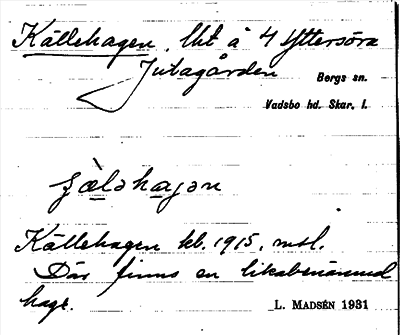 Källehagen, lht å 4 Yttersöra
Jutagården Bergs sn.
Vadsbo hd. Skar. l.
Källehagen kb. 1915, mtl.
Där finns en likabenämnd
hage.
L. MADSÉN 1931